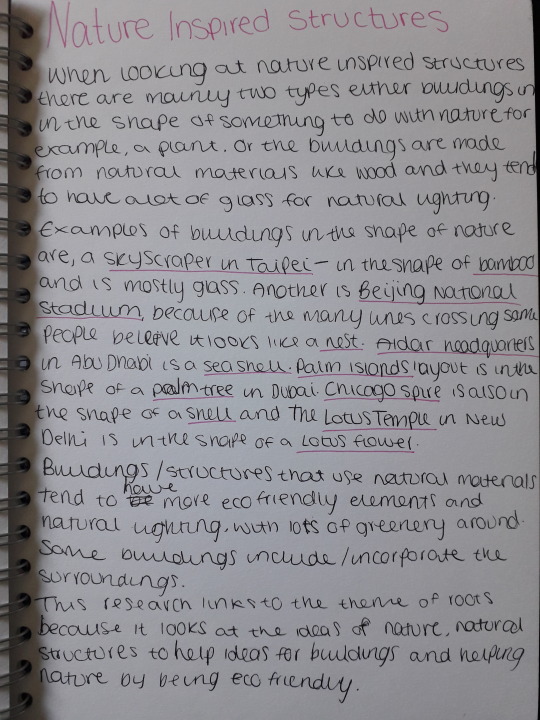 Nature Inspired Structures
When looking at nature inspired structures
there are mainly two types either buildings in
in the shape of something to do with nature for
example, a plant. Or the buildings are made
from natural materials like wood and they tend
to have alot of glass for natural lighting.
Examples of buildings in the shape of nature
are, a skyscraper in Taipei - in the shape of bamboo
and is mostly glass. Another is Beijing National
Stadium, because of the many lines crossing some
people beleive it looks like a nest. Aldar headquarters
in Abu Dhabi is a sea shell. Palm islands layout is in the
shape of a palm tree in Dubai. Chicago spire is also in
the shape of a shell and the Lotus Temple in New
Delhi is in the shape of a Lotus flower.
Buildings/structures that use natural materials
tend to have more eco friendly elements and
natural lighting. with lots of greenery around.
Some buildings include/incorporate the
surroundings.
This research links to the theme of roots
because it looks at the ideas of nature, natural
structures to help ideas for buildings and helping
nature by being eco friendly.